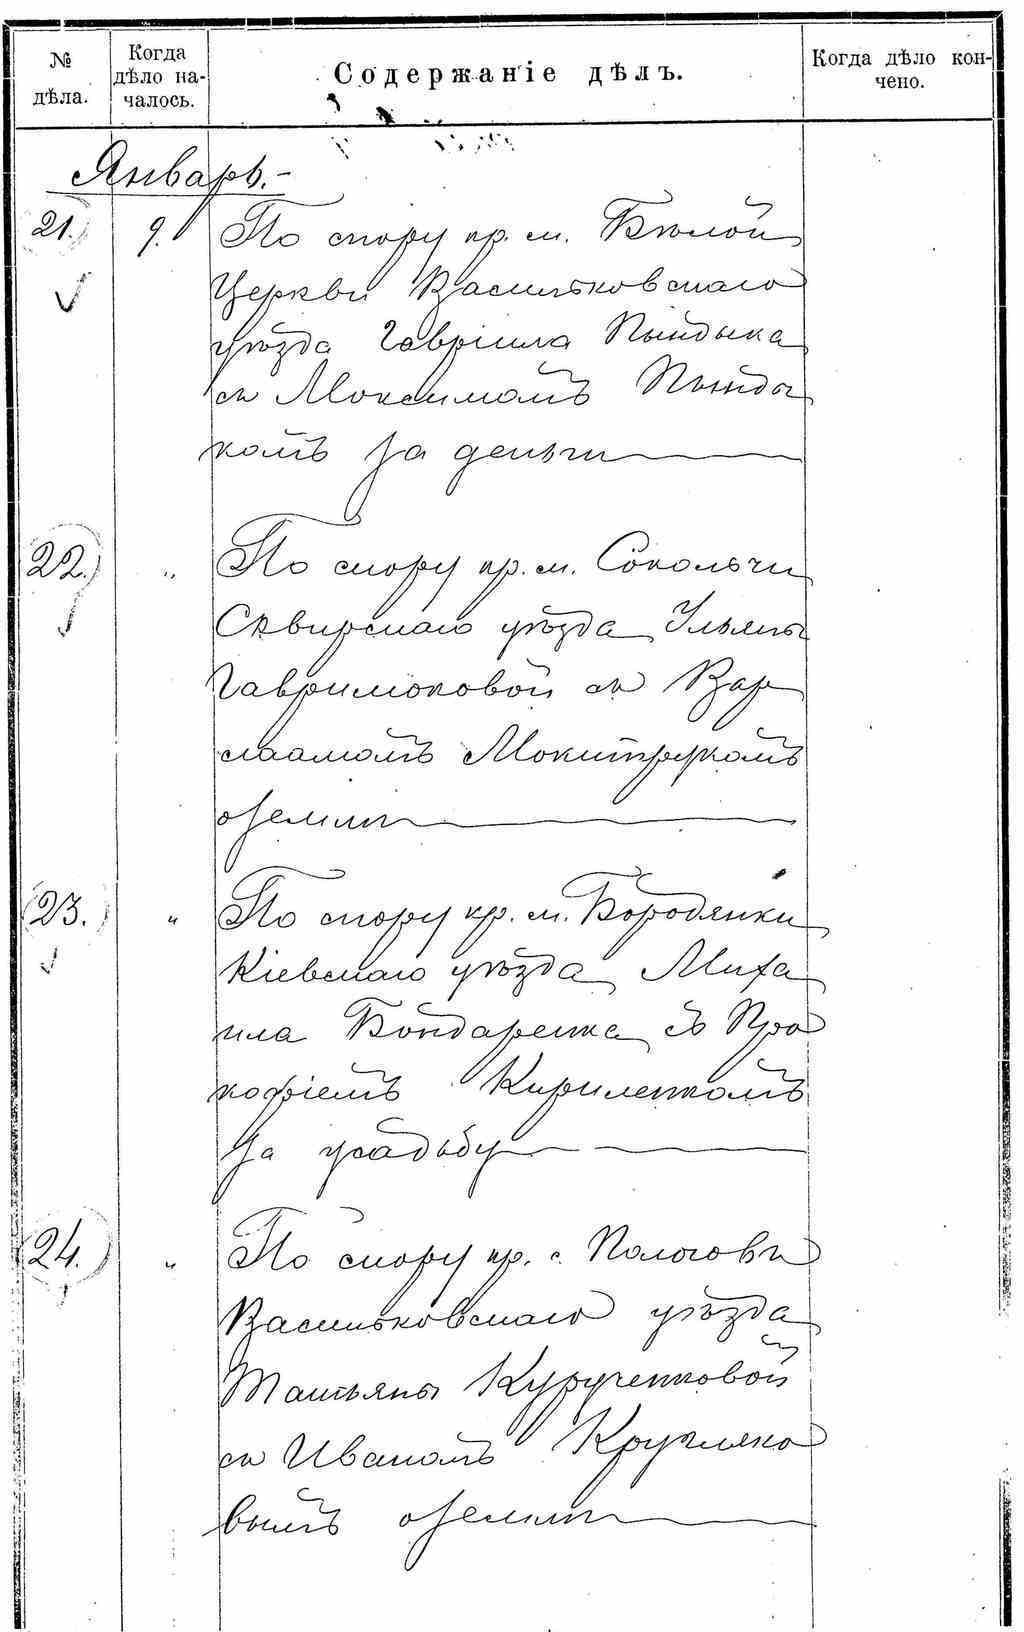 № дѣла.
Когда дѣло на-
чалось.
Содержаніе дѣлъ.
Когда дѣло кон-
чено.
Январь.-
21. 9. По спору кр. м. Бѣлой
Церкви Васильковскаго
уѣзда Гавріила Пындыка
съ Максимомъ Пынды
комъ за деньги
22. „ По спору кр. м. Сокольчи
Сквирскаго уѣзда Ульяны
Гавримоковой съ Вар
лаамомъ Мокитрукомъ
о земли
23. „ По спору кр. м. Бородянки
Кіевскаго уѣзда Миха
ила Бондаренка съ Про
кофіемъ Кириленкомъ
за усадьбу
24. „ По спору кр. с. Пологовъ
Васильковскаго уѣзда
Татьяны Куручепковой
съ Иваномъ Кругляко
вымъ о земли